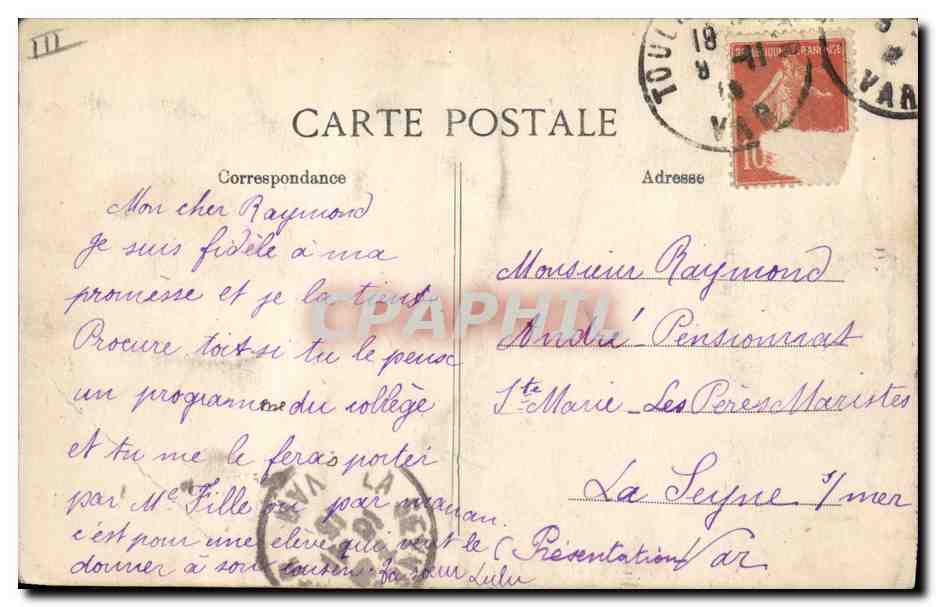 III
TOULON
18 -11
8
VAR
VAR
10
CARTE POSTALE
Correspondance
Adresse
Mon cher Raymond
Je suis fidèle à ma
promesse et je la tiens
Procure toit si tu le peux
un programme du collège
et tu me le feras porter
par Me Fille ou par maman.
c'est pour une elève qui veut le
donner à son cousin. Ta sœur Lulu
Monsieur Raymond
André Pensionnat
Ste Marie - Les Pères Maristes
La Seyne s/mer
(Présentation) Var
CPAPHIL
LA SEYNE
VAR